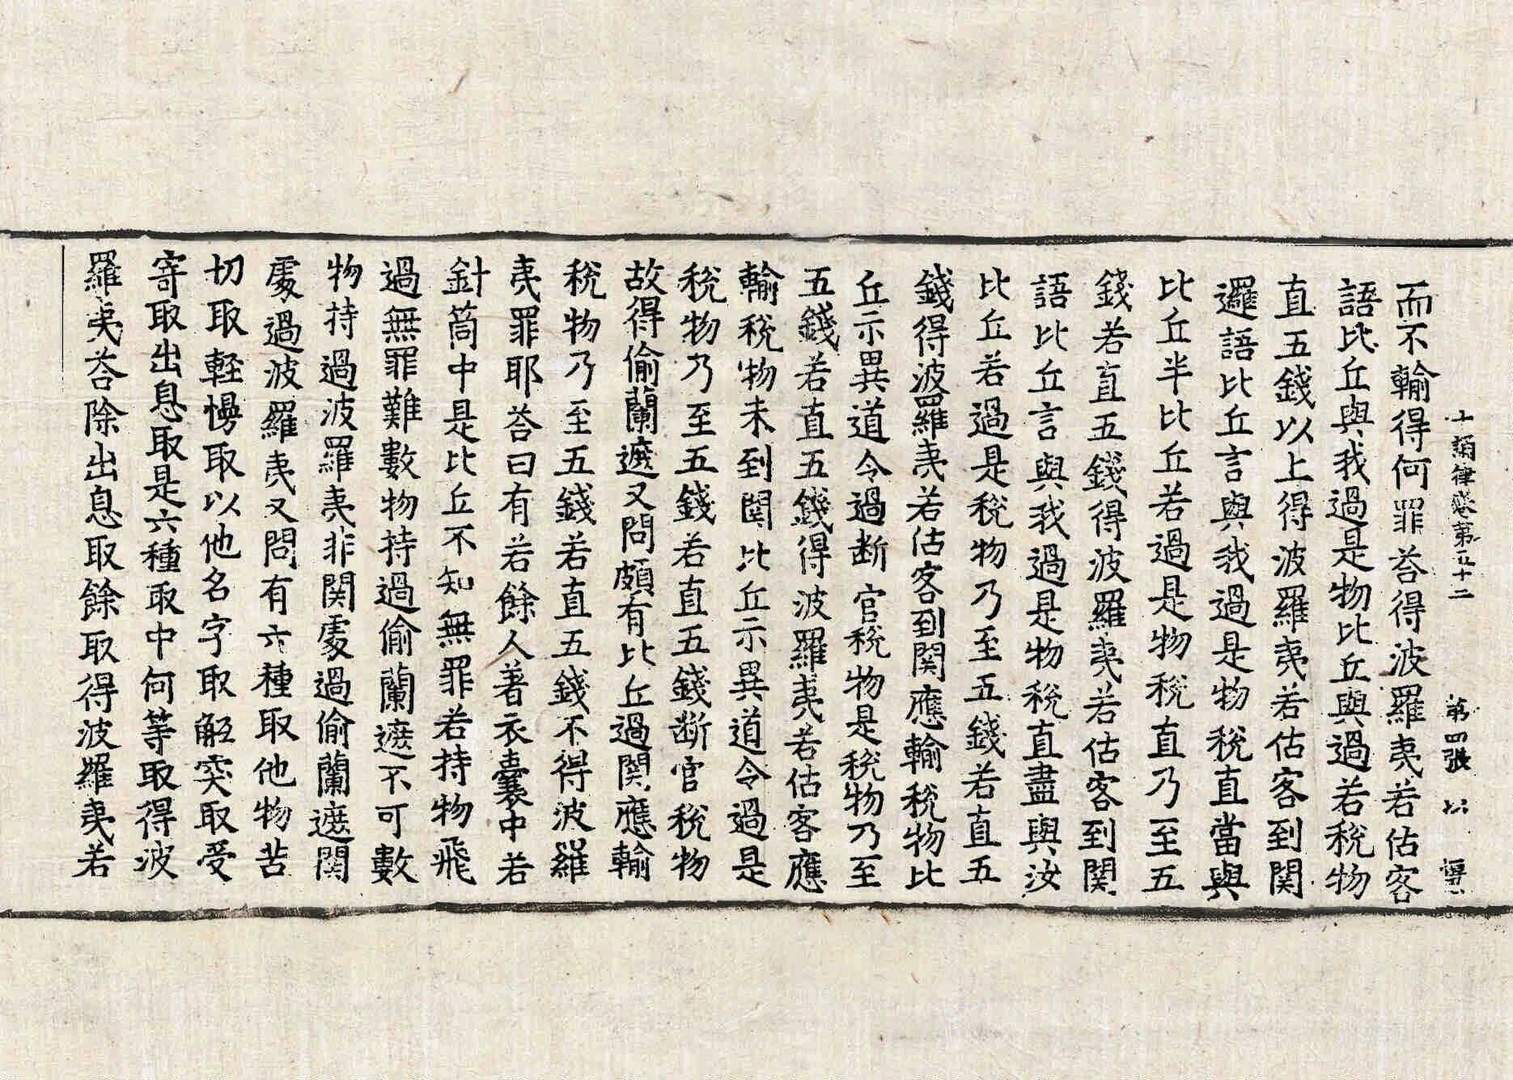 十誦律卷第五十二 第四張 以
而不輸得何罪荅得波羅夷若估客
語比丘與我過是物比丘與過若税物
直五錢以上得波羅夷若估客到関
邏語比丘言與我過是物税直當與
比丘半比丘若過是物税直乃至五
錢若直五錢得波羅夷若估客到関
語比丘言與我過是物税直盡與汝
比丘若過是税物乃至五錢若直五
錢得波羅夷若估客到関應輸税物比
丘示異道令過断官税物是税物乃至
五錢若直五錢得波羅夷若估客應
輸税物未到関比丘示異道令過是
税物乃至五錢若直五錢断官税物
故得偷蘭遮又問頗有比丘過関應輸
税物乃至五錢若直五錢不得波羅
夷罪耶荅曰有若餘人著衣囊中若
針筒中是比丘不知無罪若持物飛
過無罪難數物持過偷蘭遮不可數
物持過波羅夷非関處過偷蘭遮関
處過波羅夷又問有六種取他物苦
切取輕慢取以他名字取觝突取受
寄取出息取是六種取中何等取得波
羅夷荅除出息取餘取得波羅夷若